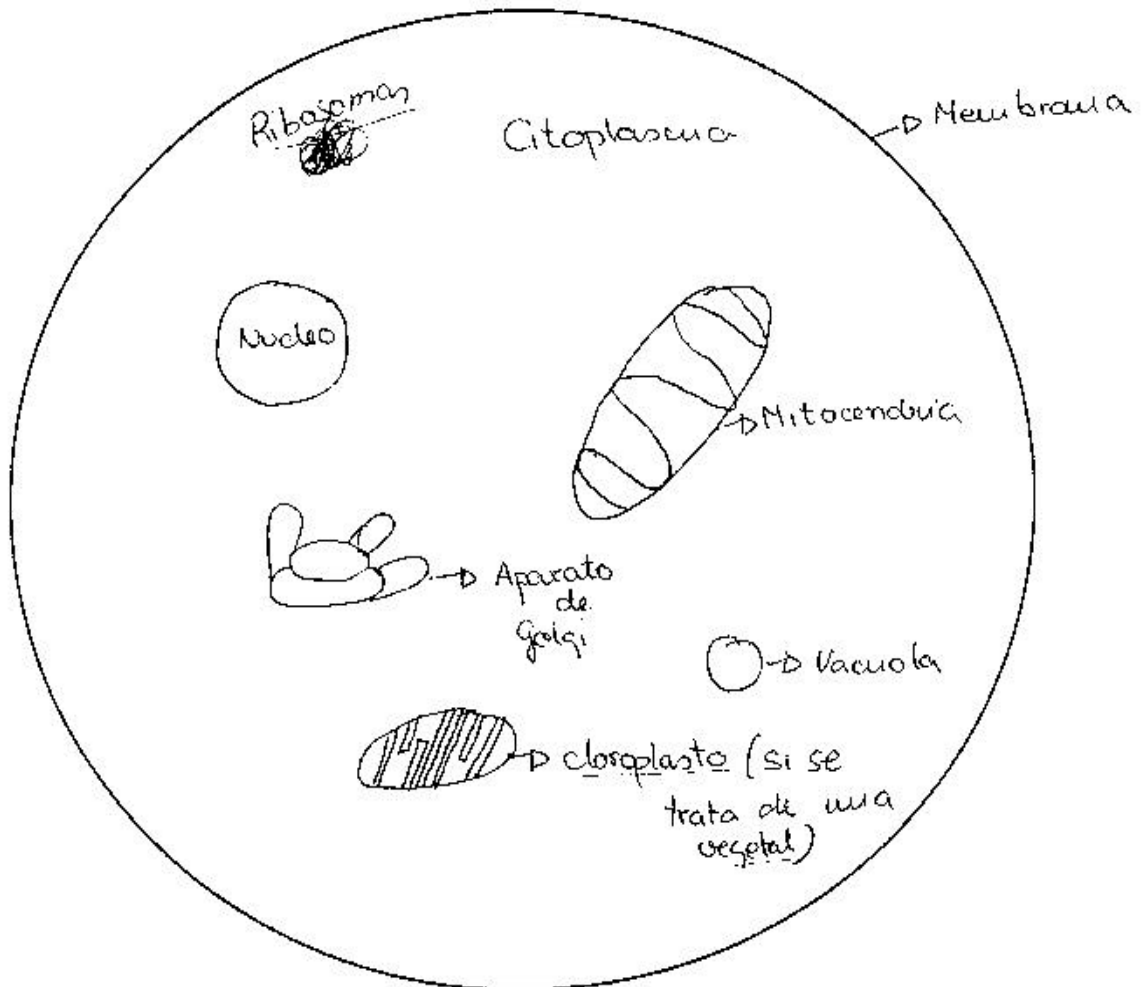 Ribosomas
Citoplasma
Membrana
Nucleo
Mitocondria
Aparato
de
Golgi
Vacuola
cloroplasto (si se
trata de una
vegetal)